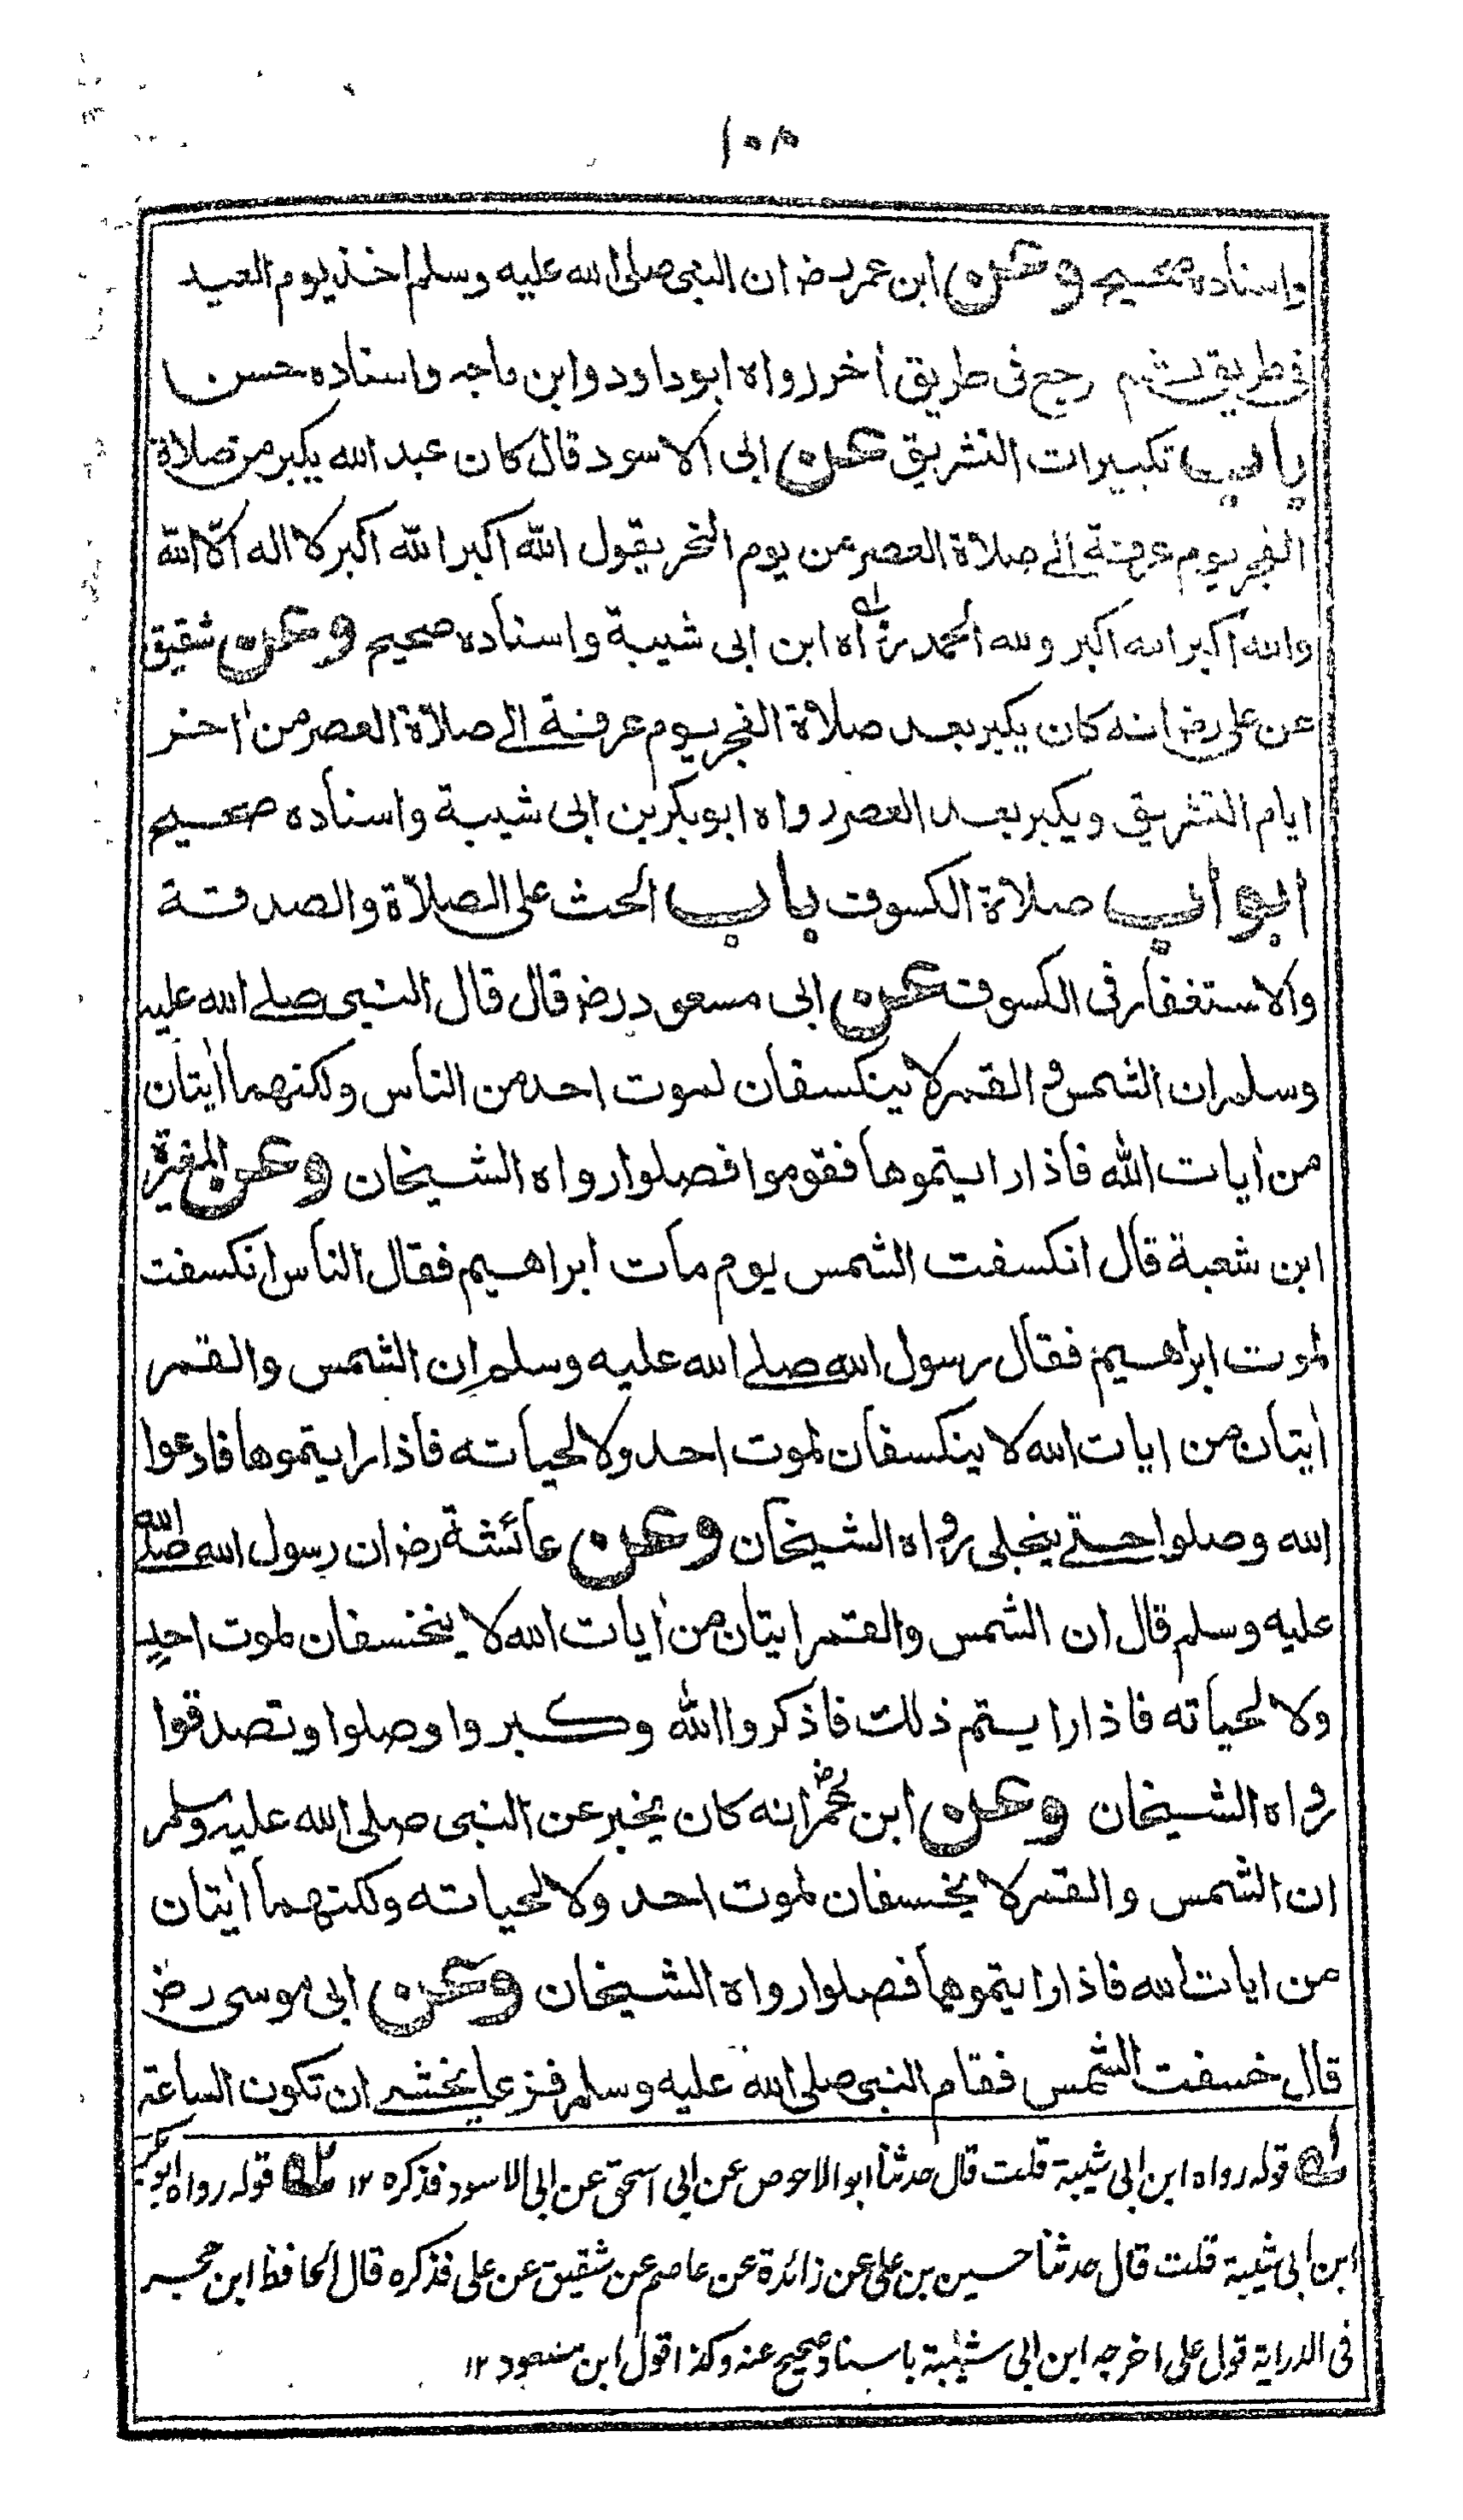 ١٠٨
واسناده صحيح وعن ابن عمر رض ان النبى صلى الله عليه وسلم اخذ يوم العيد
فى طريق ثم رجع فى طريق اٰخر رواه ابو داود وابن ماجه واسناده حسن
باب تكبيرات التشريق عن ابى الاسود قال كان عبد الله يكبر من صلاة
الفجر يوم عرفة الى صلاة العصر من يوم النحر يقول الله اكبر الله اكبر لا اله الا الله
والله اكبر الله اكبر ولله الحمد رواه ابن ابى شيبة واسناده صحيح وعن شقيق
عن على رض انه كان يكبر بعد صلاة الفجر يوم عرفة الى صلاة العصر من اٰخر
ايام التشريق ويكبر بعد العصر رواه ابو بكر بن ابى شيبة واسناده صحيح
ابواب صلاة الكسوف باب الحث على الصلاة والصدقة
والاستغفار فى الكسوف عن ابى مسعود رض قال قال النبى صلى الله عليه
وسلم ان الشمس والقمر لا ينكسفان لموت احد من الناس ولكنهما اٰيتان
من اٰيات الله فاذا رايتموها فقوموا فصلوا رواه الشيخان وعن المغيرة
ابن شعبة قال انكسفت الشمس يوم مات ابراهيم فقال الناس انكسفت
لموت ابراهيم فقال رسول الله صلى الله عليه وسلم ان الشمس والقمر
اٰيتان من ايات الله لا ينكسفان لموت احد ولا لحياته فاذا رايتموها فادعوا
الله وصلوا حتى ينجلى رواه الشيخان وعن عائشة رض ان رسول الله صلى الله
عليه وسلم قال ان الشمس والقمر ايتان من اٰيات الله لا ينخسفان لموت احد
ولا لحياته فاذا رايتم ذلك فاذكروا الله وكبروا وصلوا وتصدقوا
رواه الشيخان وعن ابن عمر رض انه كان يخبر عن النبى صلى الله عليه وسلم
ان الشمس والقمر لا يخسفان لموت احد ولا لحياته ولكنهما اٰيتان
من ايات الله فاذا رايتموها فصلوا رواه الشيخان وعن ابى موسى رض
قال خسفت الشمس فقام النبى صلى الله عليه وسلم فزعا يخشى ان تكون الساعة
١ه قوله رواه ابن ابى شيبة قلت قال حدثنا ابو الاحوص عن ابى اسحق عن ابى الاسود فذكره ١٢ ٢ه قوله رواه ابو بكر
ابن ابى شيبة قلت قال حدثنا حسين بن على عن زائدة عن عاصم عن شقيق عن على فذكره قال الحافظ ابن حجر
فى الدراية قول على اخرجه ابن ابى شيبة باسناد صحيح عنه وكذا قول ابن مسعود ١٢